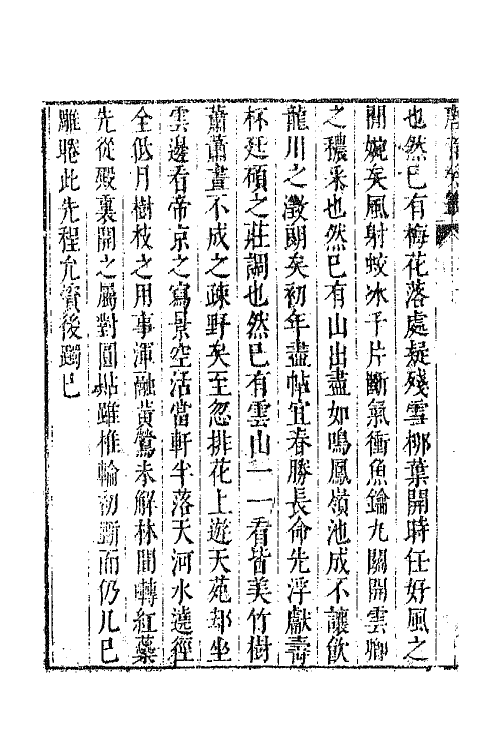 也然已有梅花落處疑殘雪柳葉開時任好風之
閒婉矣風射蛟冰千片斷氣衝魚鑰九關開雲卿
之穠采也然已有山出盡如鳴鳳嶺池成不讓飲
龍川之澂朗矣初年盡帖宜春勝長命先浮獻壽
杯廷碩之莊調也然已有雲山一一看皆美竹樹
蕭蕭畫不成之疎野矣至忽排花上遊天苑却坐
雲邊看帝京之寫景空活當軒半落天河水遶徑
全低月樹枝之用事渾融黃鶯未解林間囀紅蘂
先從殿裏開之屬對圓㸃雖椎輪初斷而仍几已
雕睠此先程允資後躅已